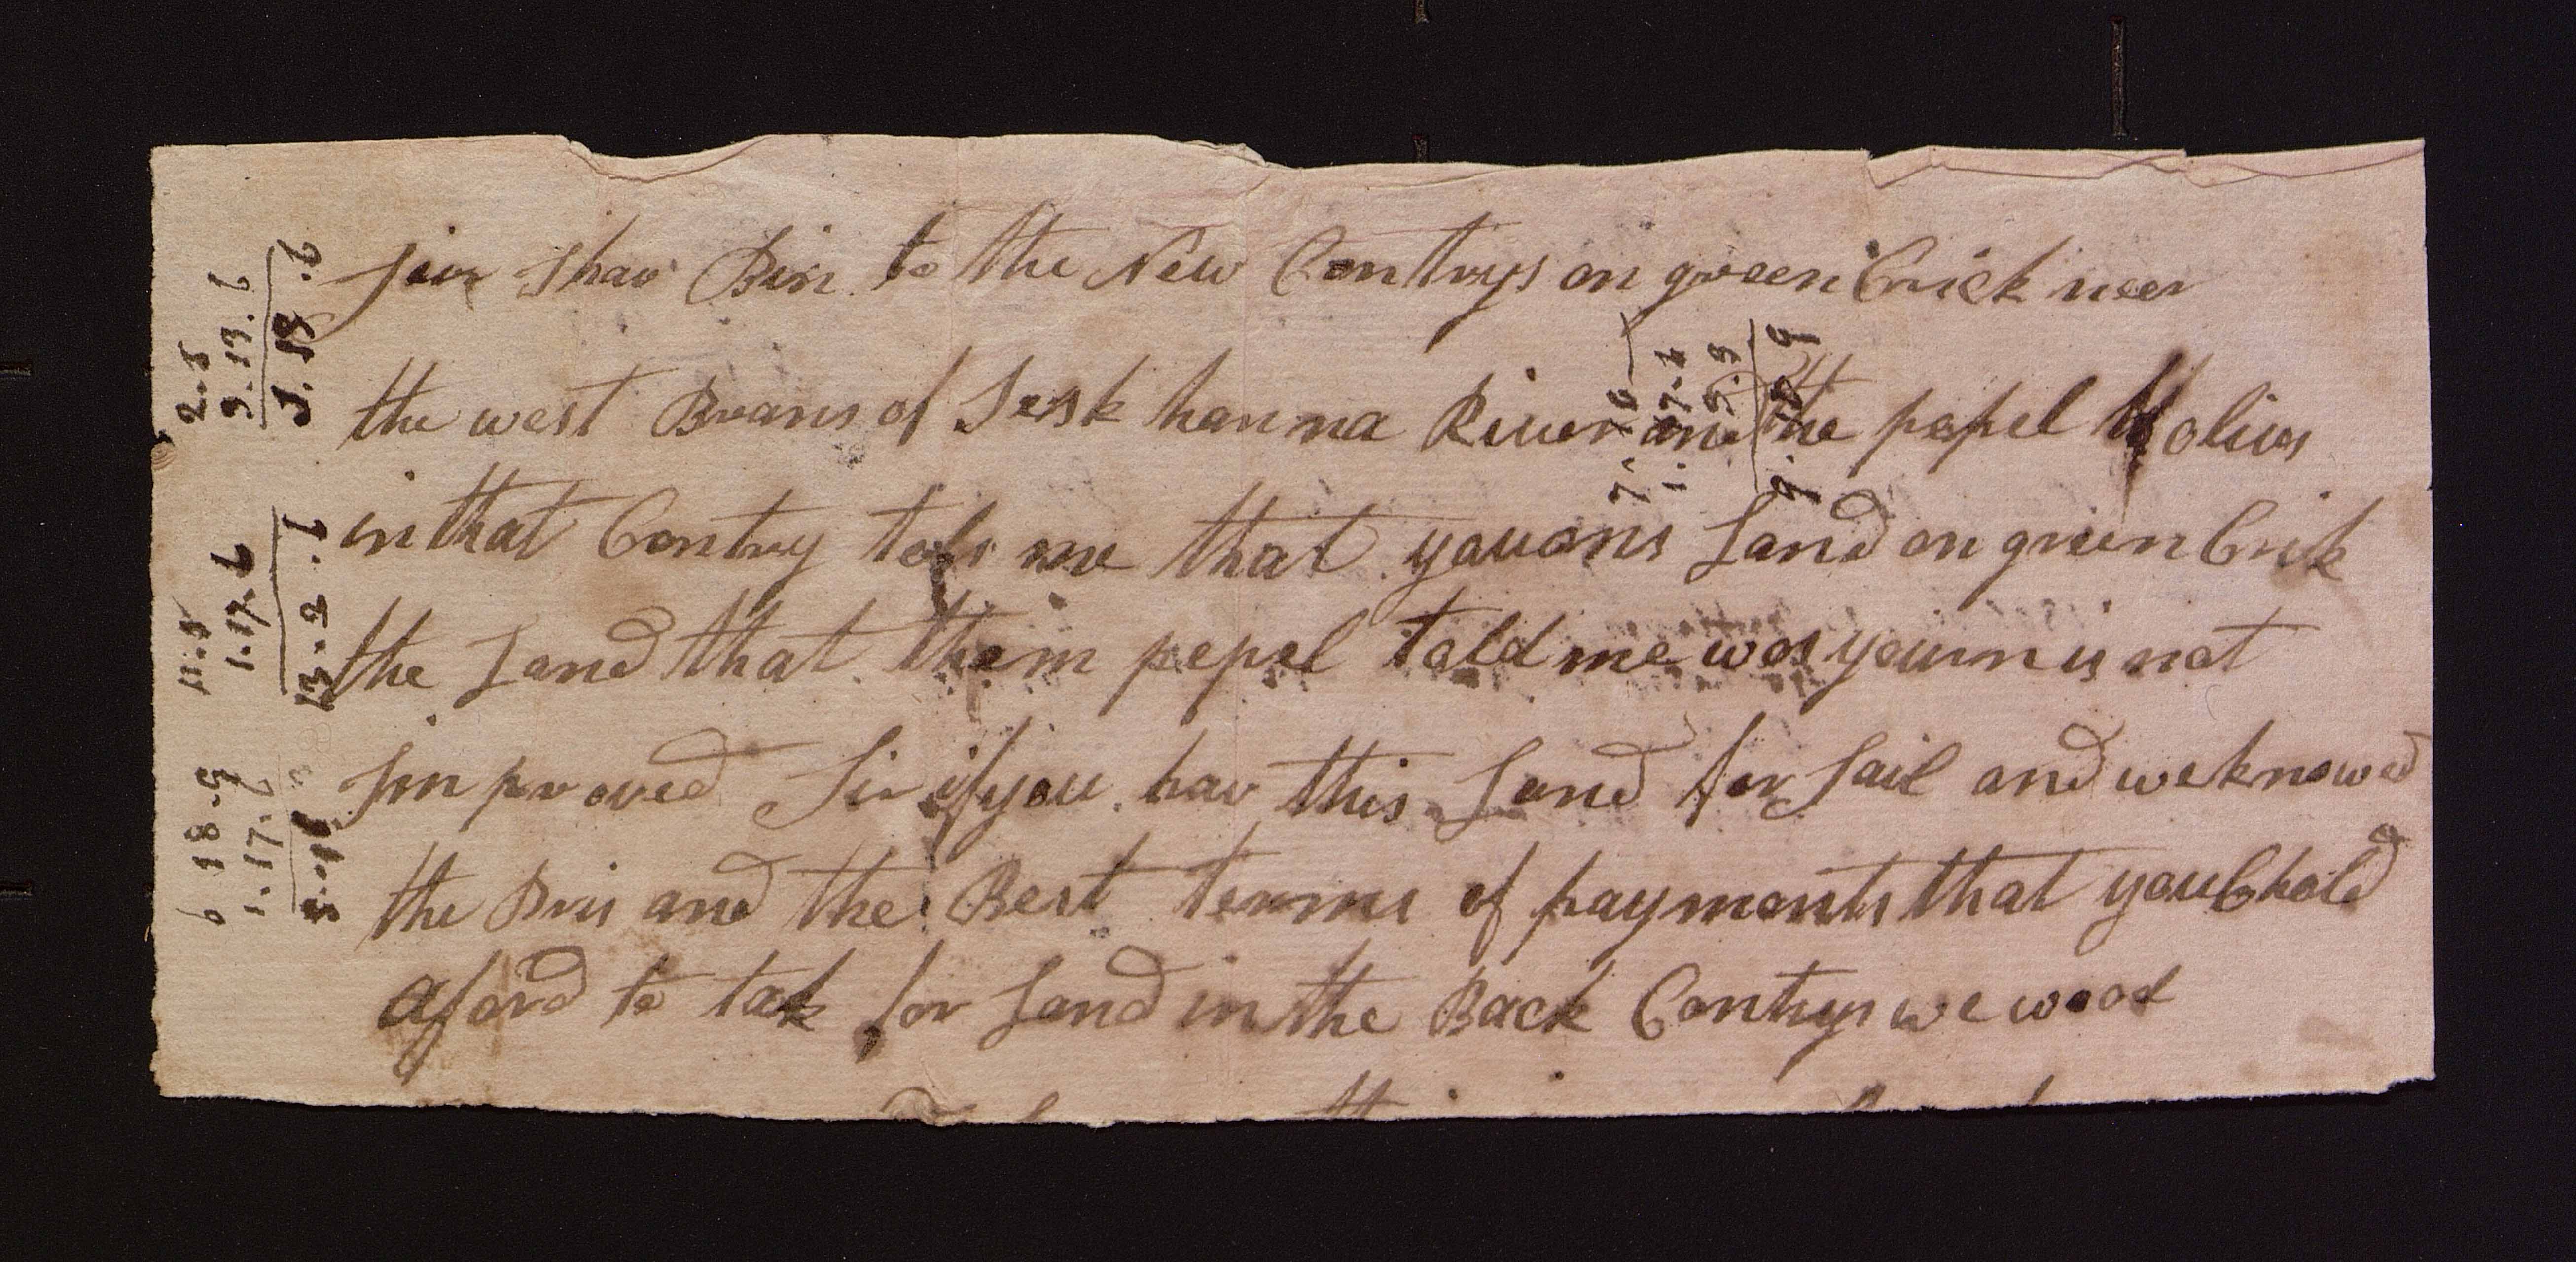 sir I hav Bin to the New Contrys on green Crick neer
the west Brans of Sesk han na River and the pepel holivs
in that Contry tols me that youons Land on green Crik
the Land that them pepel told me wos yourn is not
Im proved Sir if you hav this Land for Sail and we knowed
the Pris and the Best terms of payments that you Chold
aford to tak for Land in the Back Contrys we wood
2-5
9.13.6
11.9
1.17.6
13.2.6
6 18-9
1.17.6